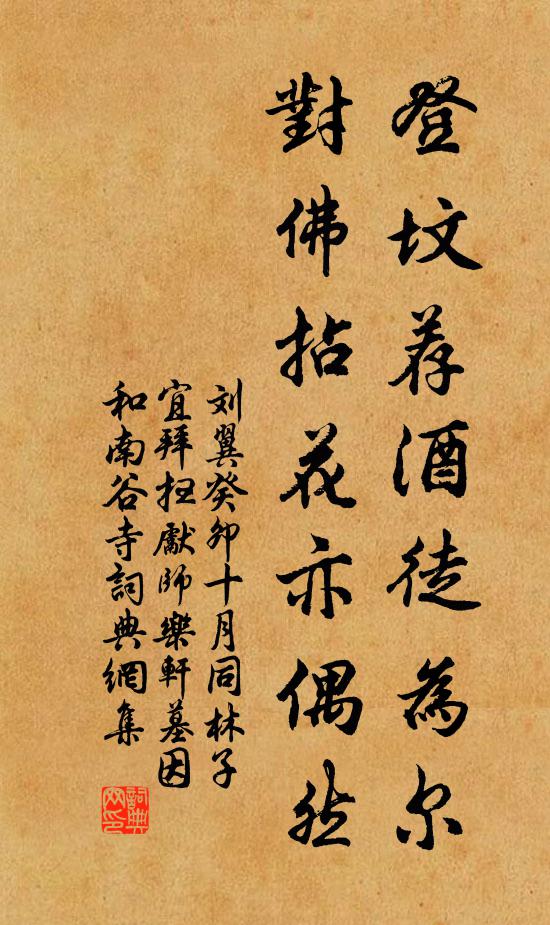 登坟荐酒徒為尔
對佛拈花亦偶然
刘翼癸卯十月同林子
宜拜扫獻師樂軒墓因
和南谷寺詞典網集
詞典网印